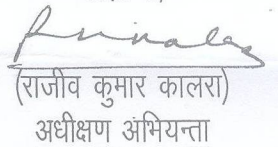 (राजीव कुमार कालरा)
अधीक्षण अभियन्ता